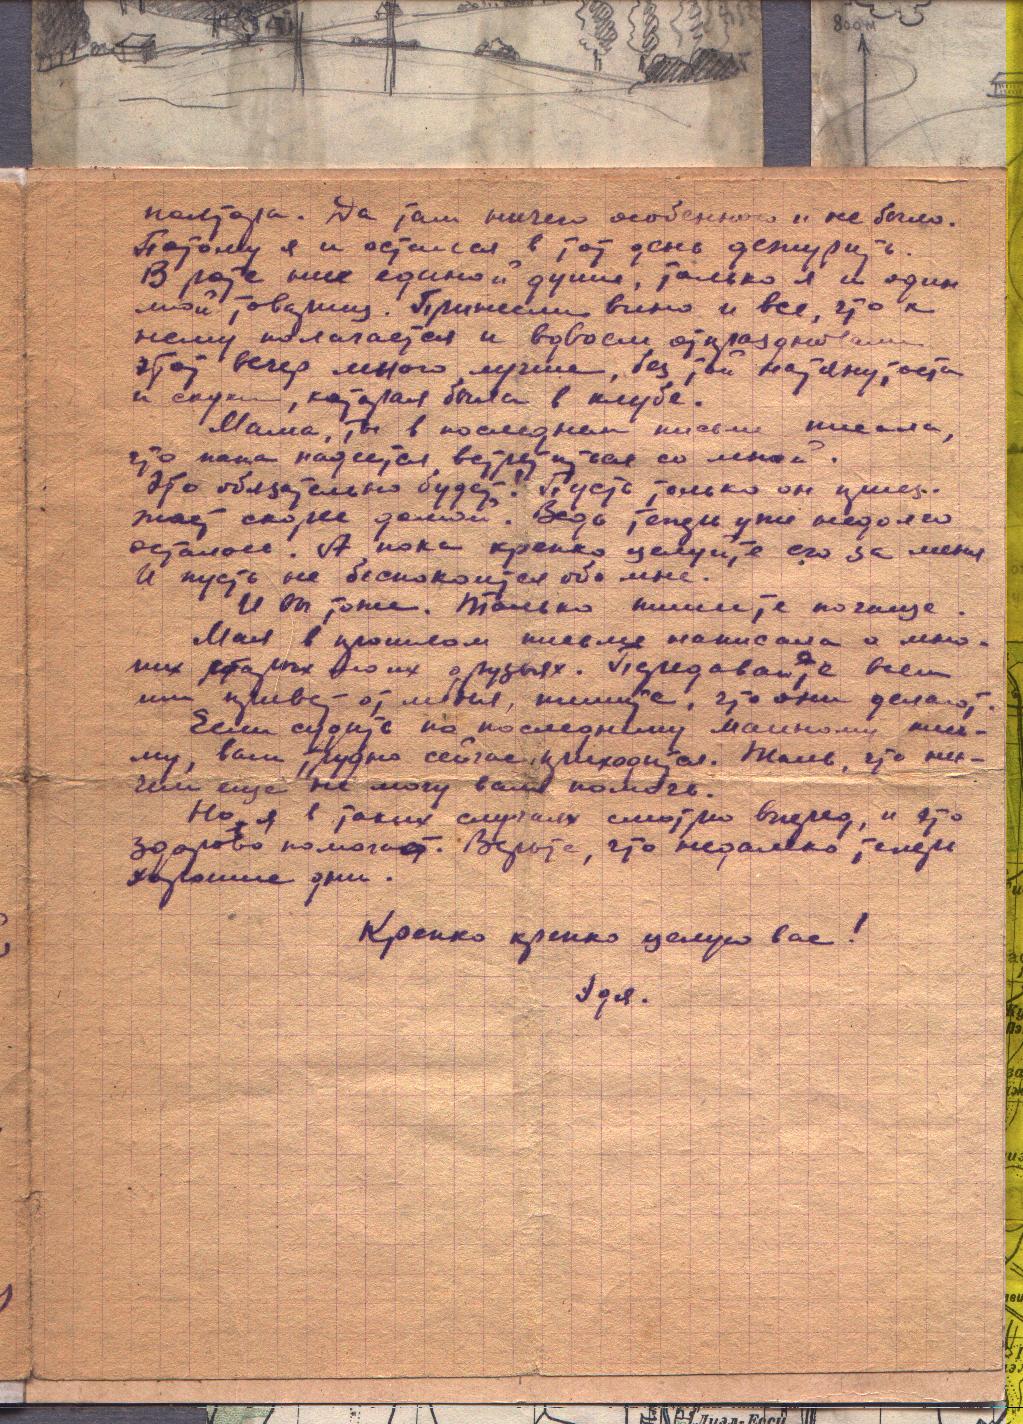 800м
полтора. Да там ничего особенного и не было.
Потому я и остался в тот день дежурить.
В роте ни единой души, только я и один
мой товарищ. Принесли вино и все, что к
нему полагается и вдвоем отпраздновали
этот вечер много лучше, без той натянутости
и скуки, которая была в клубе.
Мама, ты в последнем письме писала,
что папа надеется встретиться со мной.
Это обязательно будет! Пусть только он приез-
жает скорее домой. Ведь теперь уже недолго
осталось. А пока крепко целуйте его за меня
И пусть не беспокоится обо мне.
И ты тоже. Только пишите почаще.
Мая в прошлом письме написала о мно-
гих старых моих друзьях. Передавайте всем
им привет от меня, пишите, что они делают.
Если судить по последнему маиному пись-
му, вам трудно сейчас приходится. Жаль, что ни-
чем еще не могу вам помочь.
Но я в таких случаях смотрю вперед, и это
здорово помогает. Верьте, что недалеко теперь
хорошие дни.
Крепко крепко целую вас!
Эдя.